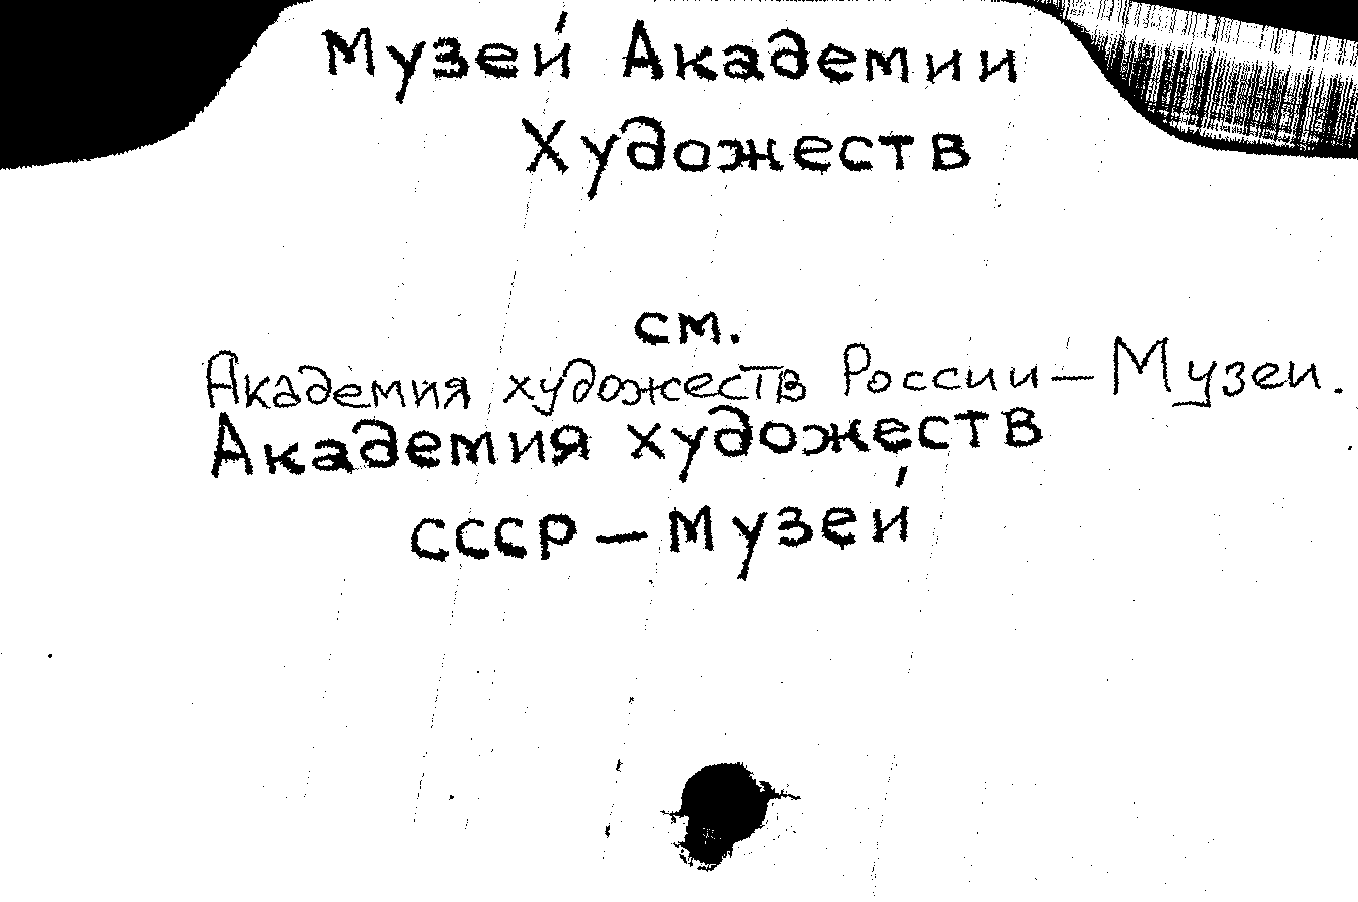 Музей Академии
Художеств
см.
Академия художеств России – Музеи.
Академия художеств
СССР – Музей